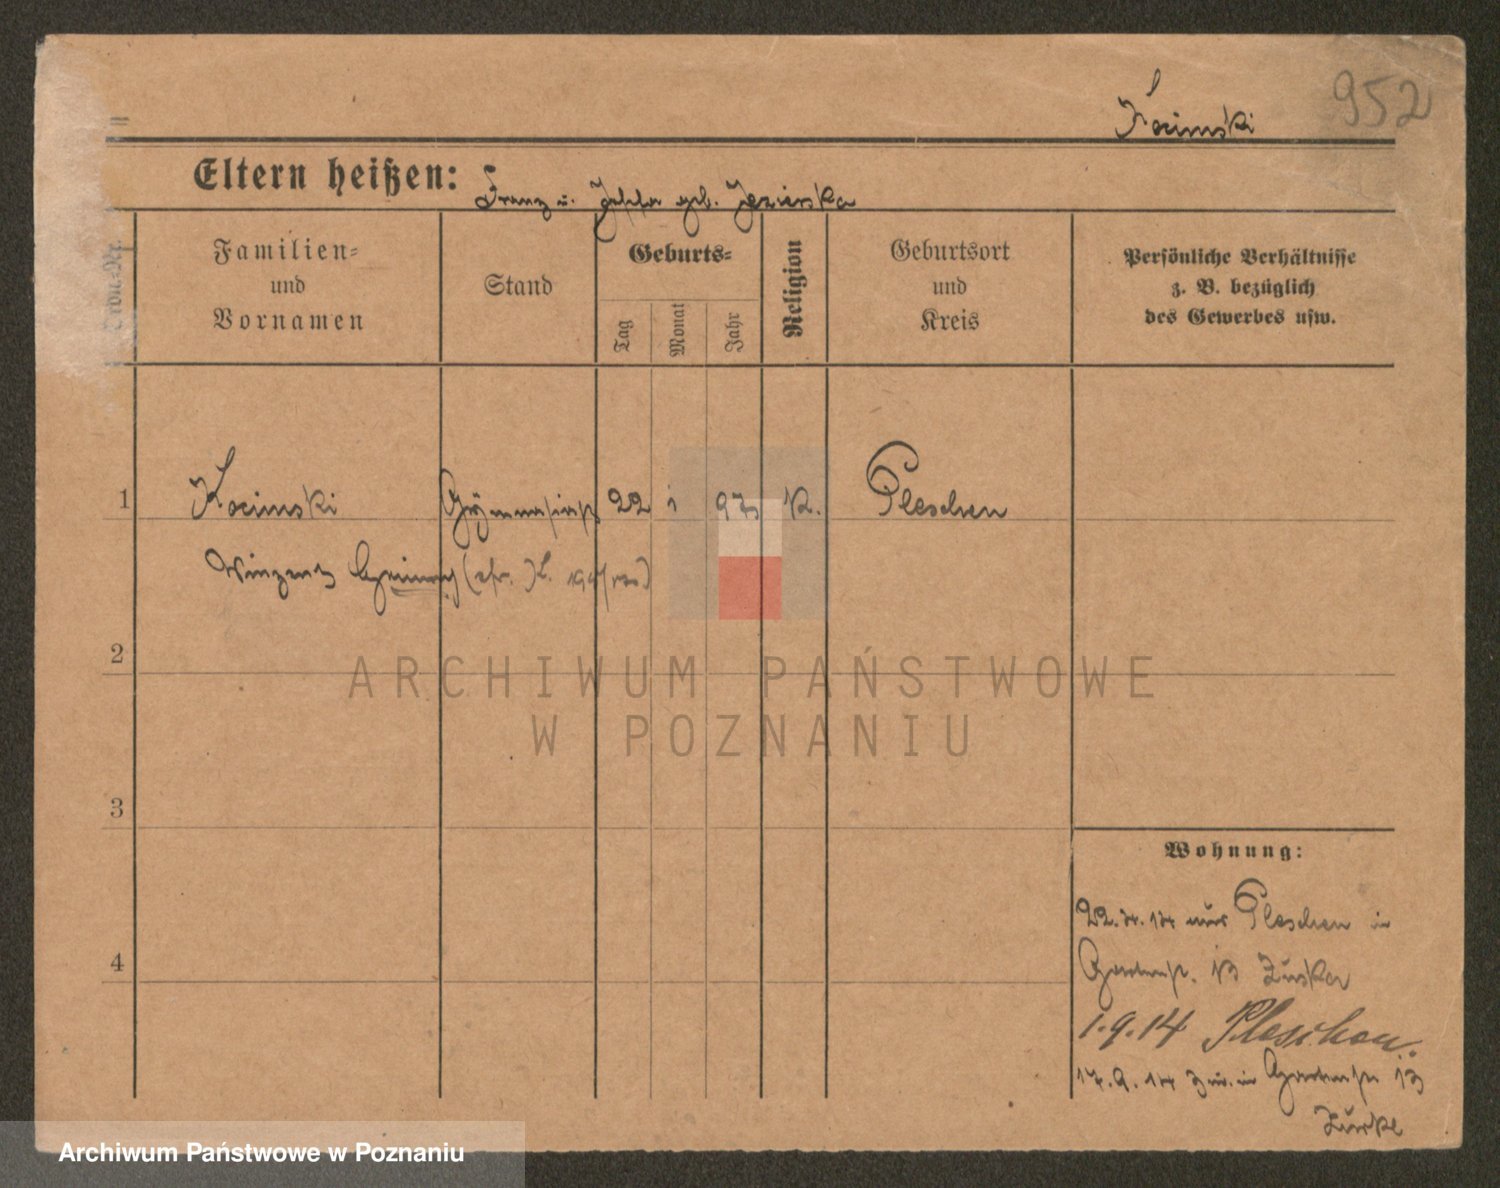 952
Kocimski
Eltern heißen: Franz u. Josefa geb. Jezierska
Ordn.-Nr.
Familien-
und
Vornamen
Stand
Geburts-
Tag
Monat
Jahr
Religion
Geburtsort
und
Kreis
Persönliche Verhältnisse
z. B. bezüglich
des Gewerbes usw.
1 Kocimski Gymnasiast 22 1 97 K. Pleschen
Vinzent
2
3
4
ARCHIWUM PAŃSTWOWE
W POZNANIU
Wohnung:
22.4.14 aus Pleschen in
Gartenstr. 13
1.9.14 Pleschen.
17.9.14 in Gartenstr 13
Archiwum Państwowe w Poznaniu